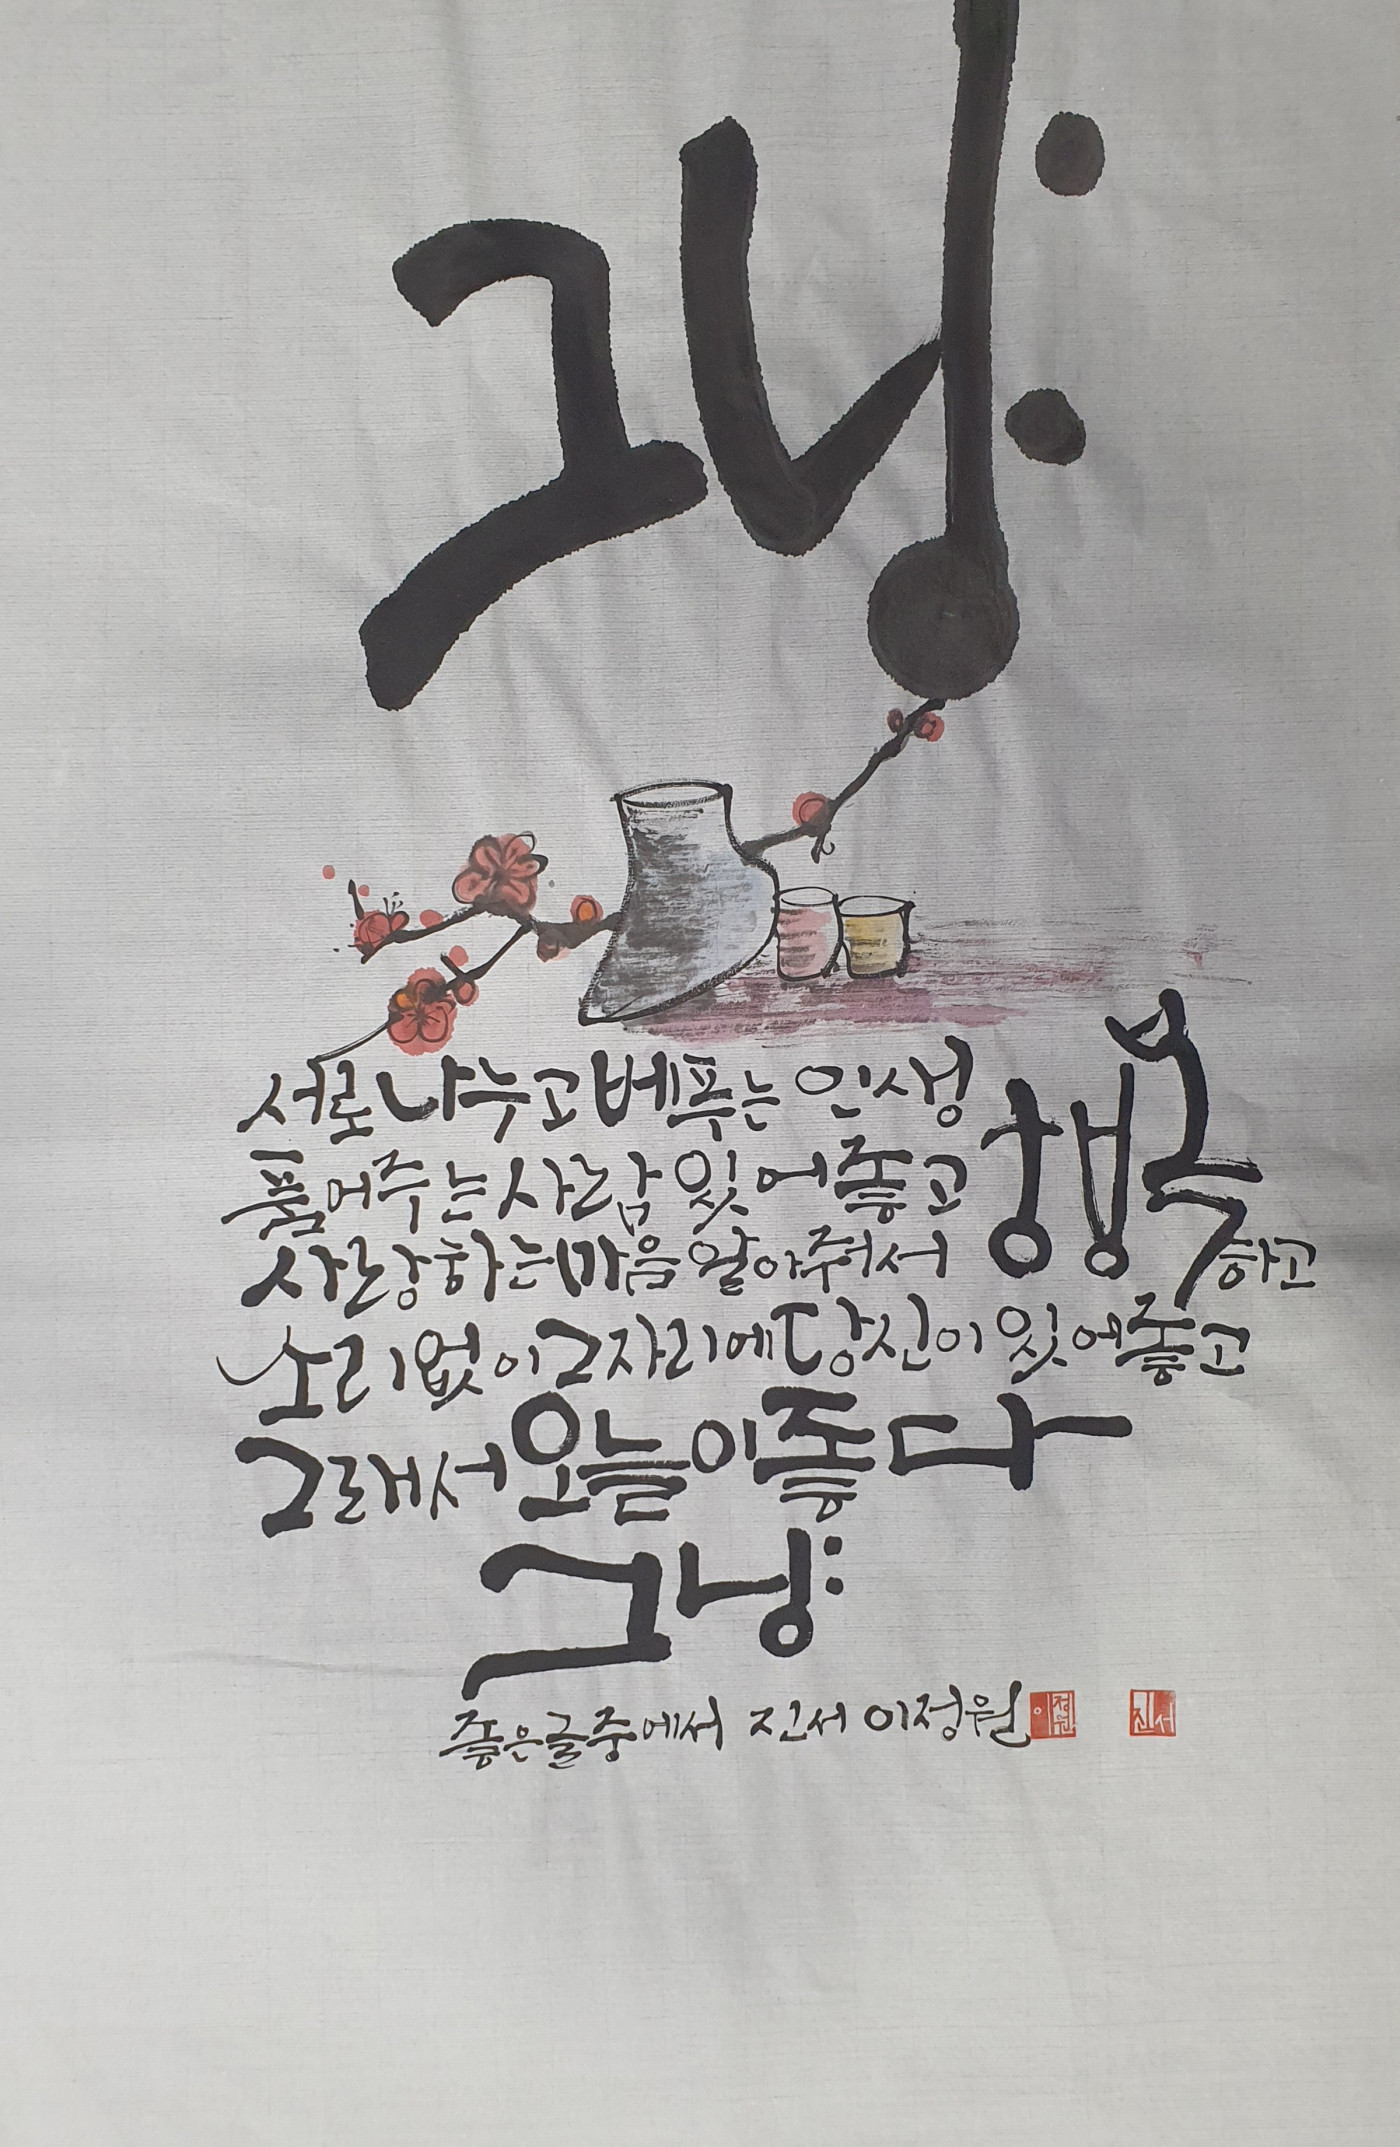 그냥
서로 나누고 베푸는 인생
품어주는 사람 있어 좋고
사랑하는 마음 알아줘서 행복하고
소리없이 그 자리에 당신이 있어 좋고
그래서 오늘이 좋다
그냥
좋은글 중에서 진서 이정원
이정원
진서